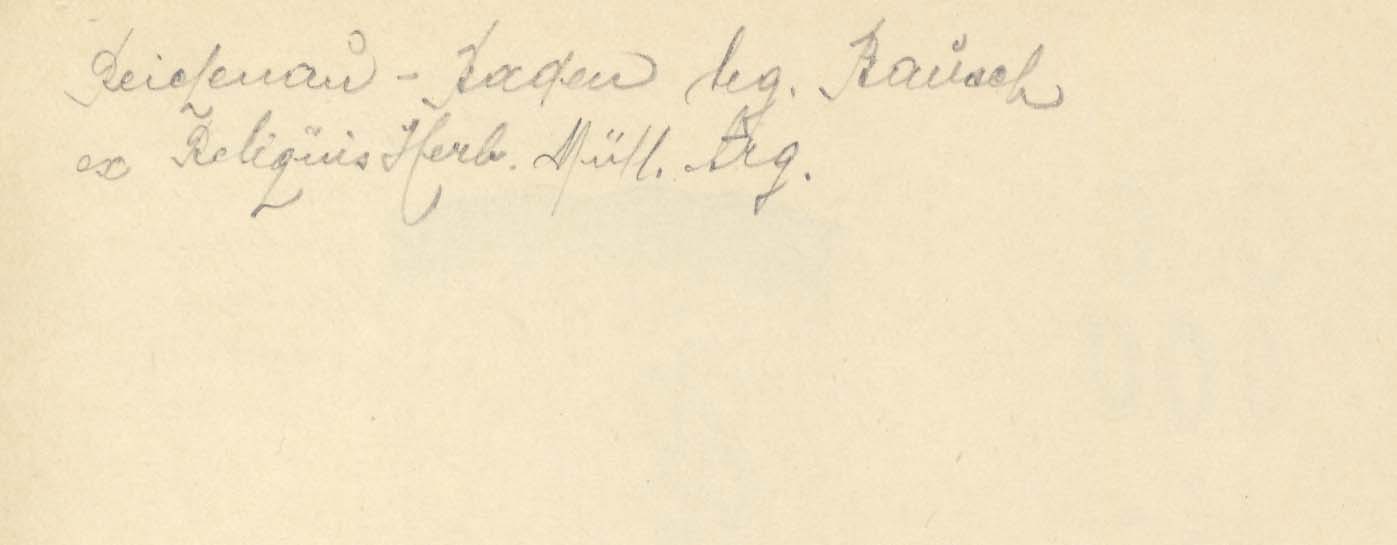 Reichenau - Baden leg. Bausch
ex Reliquis Herb. Müll. Arg.